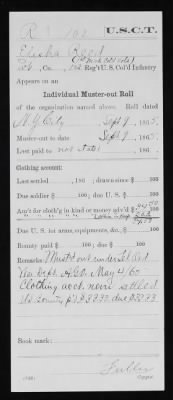 R 102 U.S.C.T.
Elisha Reed
Co., Reg't U. S. Col'd Infantry
Appears on an
Individual Muster-out Roll
of the organization named above. Roll dated
N.Y. City Sept 9, 1865.
Muster-out to date Sept 9, 1865.
Last paid to not stated, 186 .
Clothing account:
Last settled , 186 ; drawn since $ 100
Due soldier $ 100; due U. S. $ 100
Am't for cloth'g in kind or money adv'd $ 100
Due U. S. for arms, equipments, &c., $ 100
Bounty paid $ 100; due $ 100
Remarks: Must'd out under
War Dept. A.G.O. May 4/65
Clothing acct. never settled
Book mark:
Fuller
Copyist.